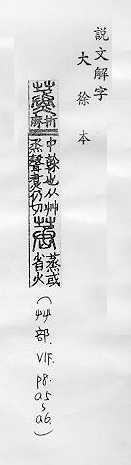 說文解字
大徐本
蒸 折麻中榦也从艸烝聲煑仍切 𦮔 蒸或省火
(艸部. VIF. p8. a5, a6.)